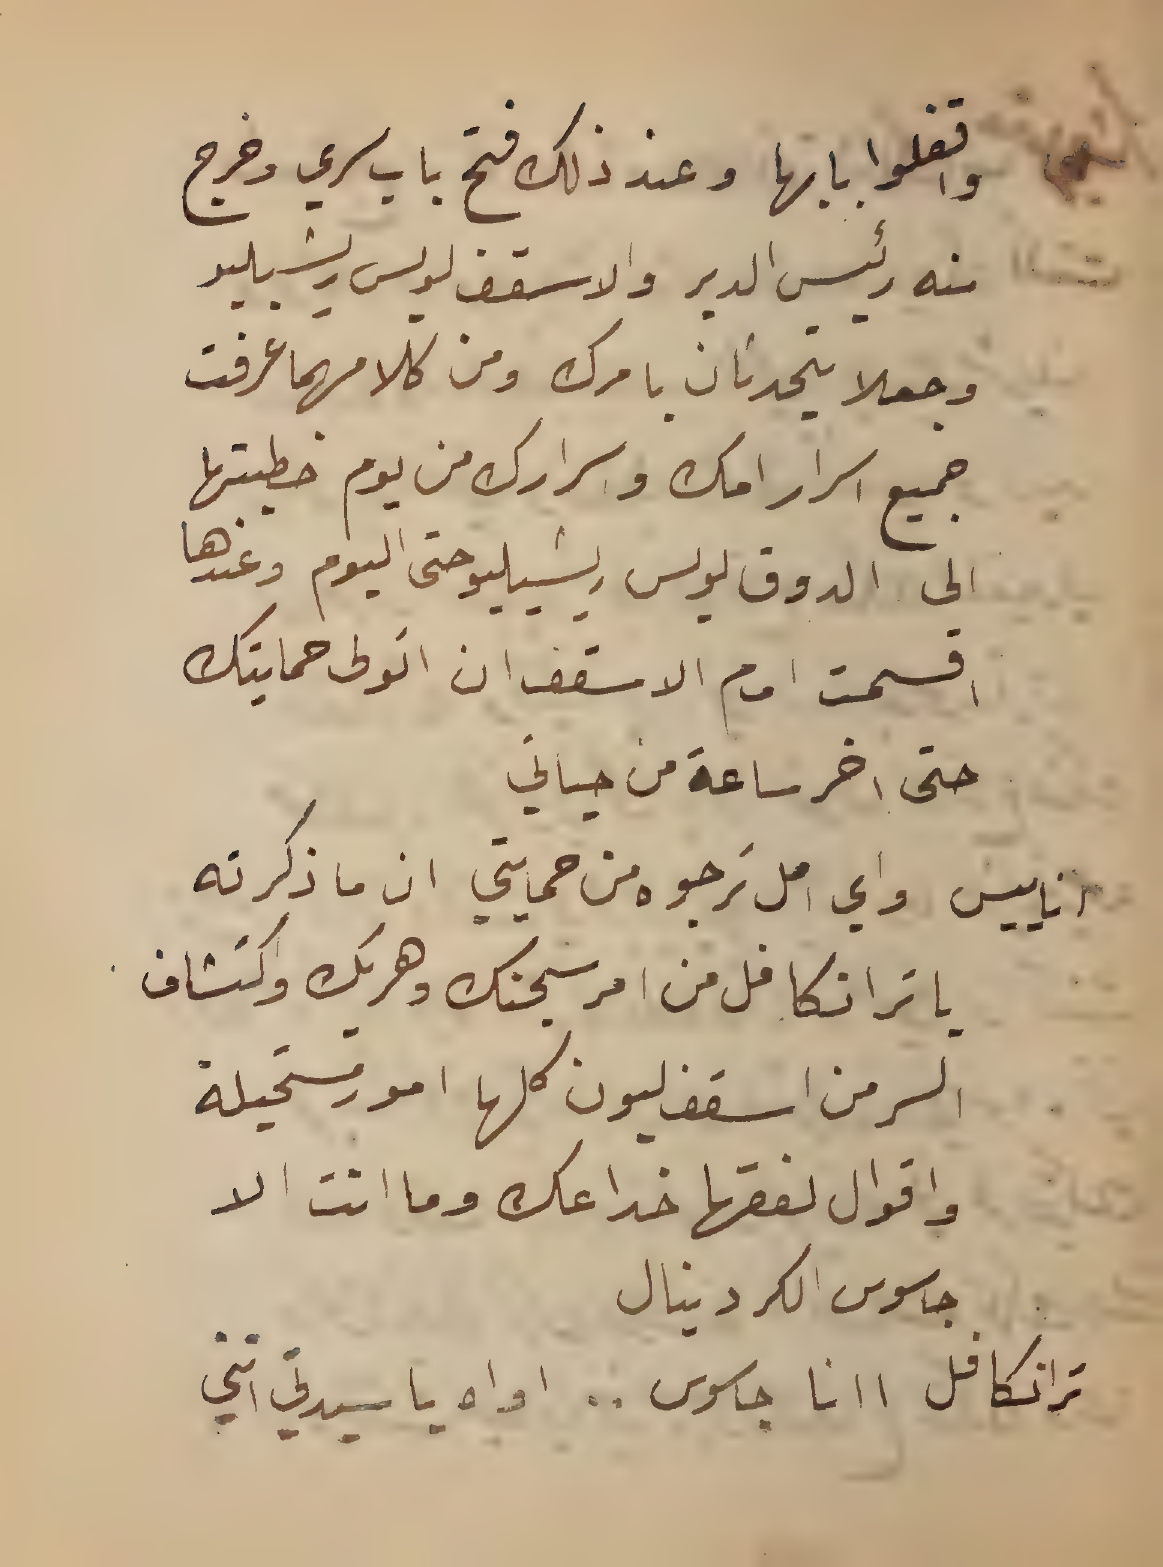 واقفلوا بابها وعند ذلك فتح باب سري وخرج
منه رئيس الدير والاسقف لويس ريشيليو
وجعلا يتحدثان بامرك ومن كلامهما عرفت
جميع اسرار امك واسرارك من يوم خطبتها
الى الدوق لويس ريشيليو حتى اليوم وعندها
اقسمت امام الاسقف ان اتولى حمايتك
حتى اخر ساعة من حياتي
اناييس واي امل نرجوه من حمايتي ان ما ذكرته
يا ترانكافل من امر سجنك وهربك واكتشاف
السر من اسقف ليون كلها امور مستحيلة
واقوال لفقها خداعك وما انت الا
جاسوس الكردينال
ترانكافل اانا جاسوس .. اواه يا سيدتي انني